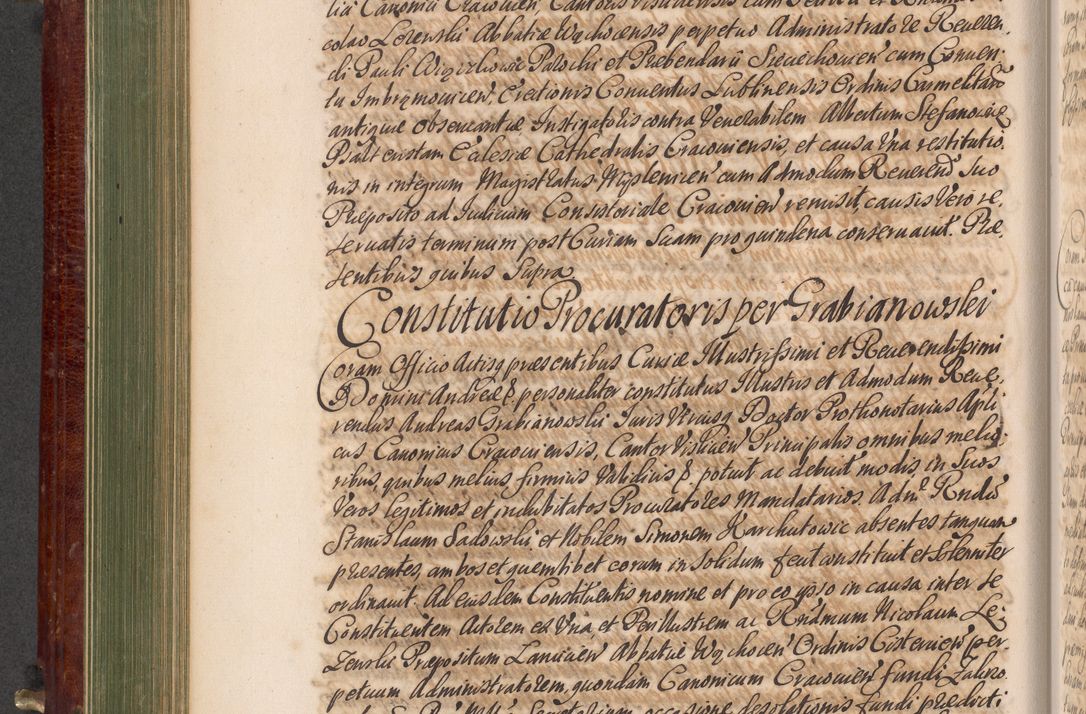 licu Canonicu Cracouien, Cantoris Visliciensis cum Perillri et Rndmo Ni
colao Lezenski Abbatiæ Wąchocensis perpetuo Administratore Reueren
di Pauli Parochi et Præbendarii Sieciechouien cum Conuen
tu Imbramouicen, Creationis Conuentus Lublinensis Ordinis Carmelitaru
antiquæ obseruantiæ Instigatoris contra Venerabilem Albertum Stefanowic
Psalteristam Eccłesiæ Cathedralis Cracouiensis, et causa Vna restitutio
nis in integrum Magistratus Myslenicen cum Admodum Reuerend suo
Præposito ad Iudicium Consistoriale Cracouien remisit, causis Vero re
seruatis terminum post Curiam Suam pro quindena conseruauit. Præ
sentibus quibus Supra
Constitutio Procuratoris per Grabianowski
Coram Officio Actisq præsentibus Curiæ Illustrissimi et Reuerendissimi
D Domini Andreæ & personaliter constitutus Illustris et Admodum Reue,
rendus Andreas Grabianowski Iuris Vtriusq Doctor Prothonotarius Apli
cus Canonicus Cracouiensis, Cantor Vislicien Principalis omnibus melio:
ribus, quibus melius firmius Validius & potuit ac debuit modis in Suos
Veros legitimos et indubitatos Procuratores Mandatarios. Adm Rndū
Stanislaum Sadowski et Nobilem Simonem Karchutowic absentes tanquam
præsentes, ambos et quemlibet eorum in solidum fecit constituit et Solenniter
ordinauit. Ad eiusdem Constituentis nomine et pro eo ipso in causa inter se
Constituentem Actorem ex Vna et Perillustrem ac Rndmum Nicolaum Le:
zenski Præpositum Lancicien Abbatiæ Wąchocen Ordinis Cistercien per
petuum Administratorem, quondam Canonicum Cracouien fundi Zakrzo
occasione desolationis fundi prædicti